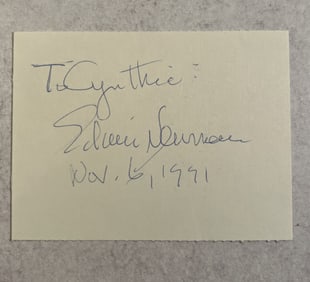 To Cynthia:
Edwin Newman
Nov. 6, 1991